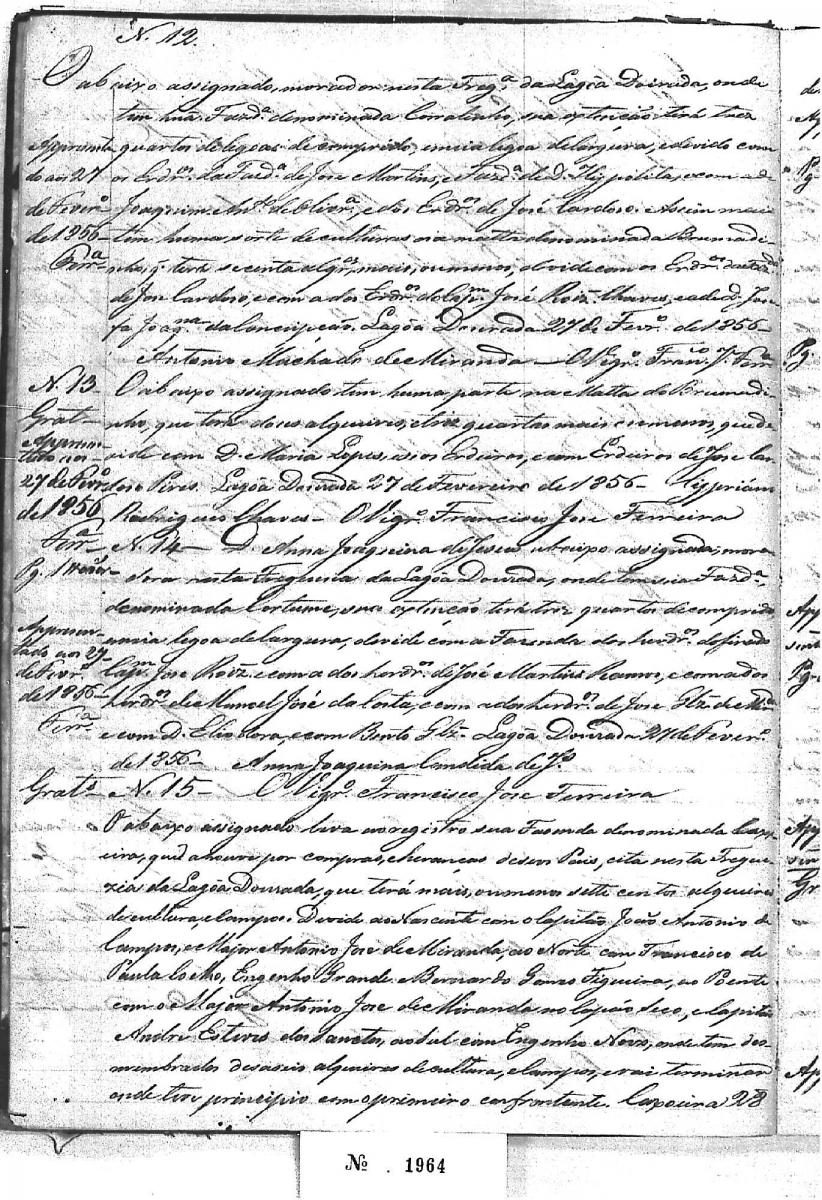 N. 12.
O abaixo assignado, morador nesta Freg.ª da Lagôa Doirada, onde
tem hua Fazd.ª denominada Corralinho, sua extenção terá trez
quartos de legoas de comprido, e meia legoa de largura, e devide com
os Erdr.os da Fazd.ª de Jose Martins, e Fazd.ª de D. Hyppolita, e com a de
Joaquim Ant.º de Olivr.ª, e dos Erdr.os de José Cardoso. Assim mais
tem huma sorte de culturas na matta denominada Brumadi-
nho, q. terá secenta alqr.es, mais, ou menos, divide com os Erdr.os
de Jose Cardoso, e com a dos Erdr.os do Cap.m José Roiz Chaves, e a de D. Jose-
fa Joaq.na da Conceipção. Lagôa Dourada 27 de Fevr.º de 1856-
Antonio Machado de Miranda - O Vigr.º Fran.co J. Ferr.ª
Appresenta
do aos 27
de Fevr.º
de 1856-
Ferr.ª
N. 13
O abaixo assignado tem huma parte na Matta do Brumadi-
nho, que terá doses alqueires, e trez quartas mais ou menos, que de-
vide com D. Maria Lopes, e seos Erdeiros, e com Erdeiros de Jose Car-
doso Pires. Lagôa Dourada 27 de Fevereiro de 1856- Hyppriam
Rodrigues Chaves- O Vigr.º Francisco Jose Ferreira
Grat-
Appresen-
tado aos
27 de Fevr.º
de 1856
Ferr.ª
N. 14- D. Anna Joaquina de Jesus abaixo assignada, mora-
dora nesta Freguesia da Lagôa Dourada, onde tem sua Fazd.ª
denominada Cortume, sua extenção terá trez quartos de comprido,
e meia legoa de largura, devide com a Fazenda dos herdr.os do finado
Cap.m Jose Roiz, e com a dos herdr.os de José Martins Ramos, e com a dos
herdr.os de Manoel José da Costa, e com a dos herdr.os de Jose Glz. de
e com D. Eliodora, e com Bento Glz. Lagôa Dourada 27 de Fever.º
de 1856- Anna Joaquina Candida de J.s
Pg.
Appresen-
tado aos 27
de Fevr.º
de 1856-
Ferr.ª
Grat.s N. 15- O Vigr.º Francisco Jose Ferreira
O abaixo assignado leva ao registro sua Fasenda denominada Capo-
eira, que a houve por compras, e heranças de seos Pais, cita nesta Fregue-
zia da Lagôa Dourada, que terá mais, ou menos sette centos alqueires
de cultura, e campos. Devide ao Nascente com o Capitão João Antonio de
Campos, e Major Antonio Jose de Miranda, ao Norte com Francisco de
Paula Coelho, Engenho Grande, Bernardo Figueira, ao Poente
com o Major Antonio Jose de Miranda no Capão Seco, e Capitão
Andre Esteves dos Sanctos, ao Sul com Engenho Novo, onde tem des-
membrados desaseis alqueires de cultura, e campos, e vai terminar
onde teve principio com o primeiro confrontente. Capoeira 28
Nº . 1964